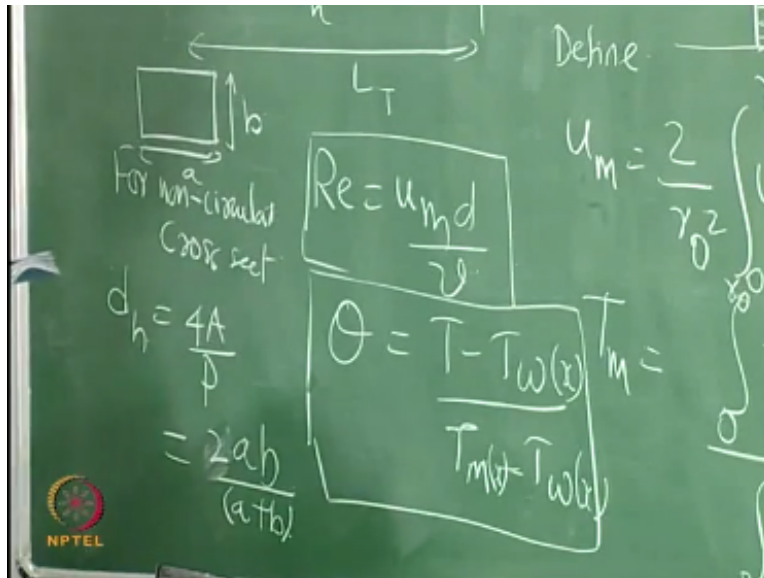 L_T
Define
b
a
For non-circular
Cross sect.
d_h = 4A/P
= 2ab/(a+b)
Re = u_m d/ν
θ = T - T_w(x)/T_m(x) - T_w(x)
u_m = 2/r_0^2 ∫
T_m =
NPTEL